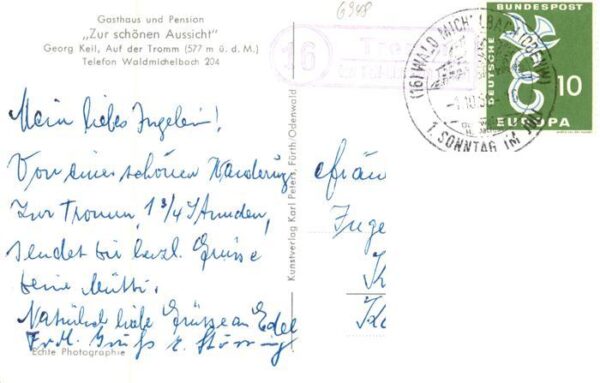 Gasthaus und Pension
„Zur schönen Aussicht"
Georg Keil, Auf der Tromm (577 m ü. d. M.)
Telefon Waldmichelbach 204
6948
16
Mein liebes Ingelein!
Von einer schönen Wanderung
zur Tromm, 1 3/4 Stunden,
sendet dir herzl. Grüsse
deine Mutti.
Natürlich liebe Grüsse an Edel
Echte Photographie
Kunstverlag Karl Peters, Fürth/Odenwald
(16) WALD-MICHELBACH (ODENW)
1. SONNTAG IM
DEUTSCHE BUNDESPOST
10
EUROPA
Fräu
Inge